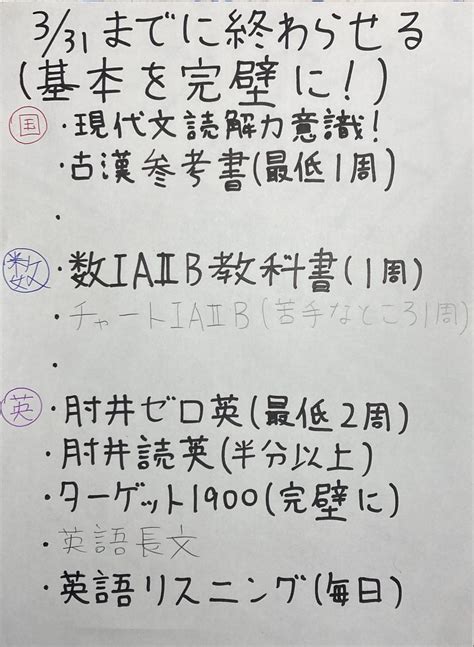 3/31までに終わらせる
(基本を完璧に!)
国
・現代文読解力意識!
・古漢参考書(最低1周)
・
数
・数IAⅡB教科書(1周)
・チャートIAⅡB(苦手なところ1周)
・
英
・肘井ゼロ英(最低2周)
・肘井読英(半分以上)
・ターゲット1900(完璧に)
・英語長文
・英語リスニング(毎日)